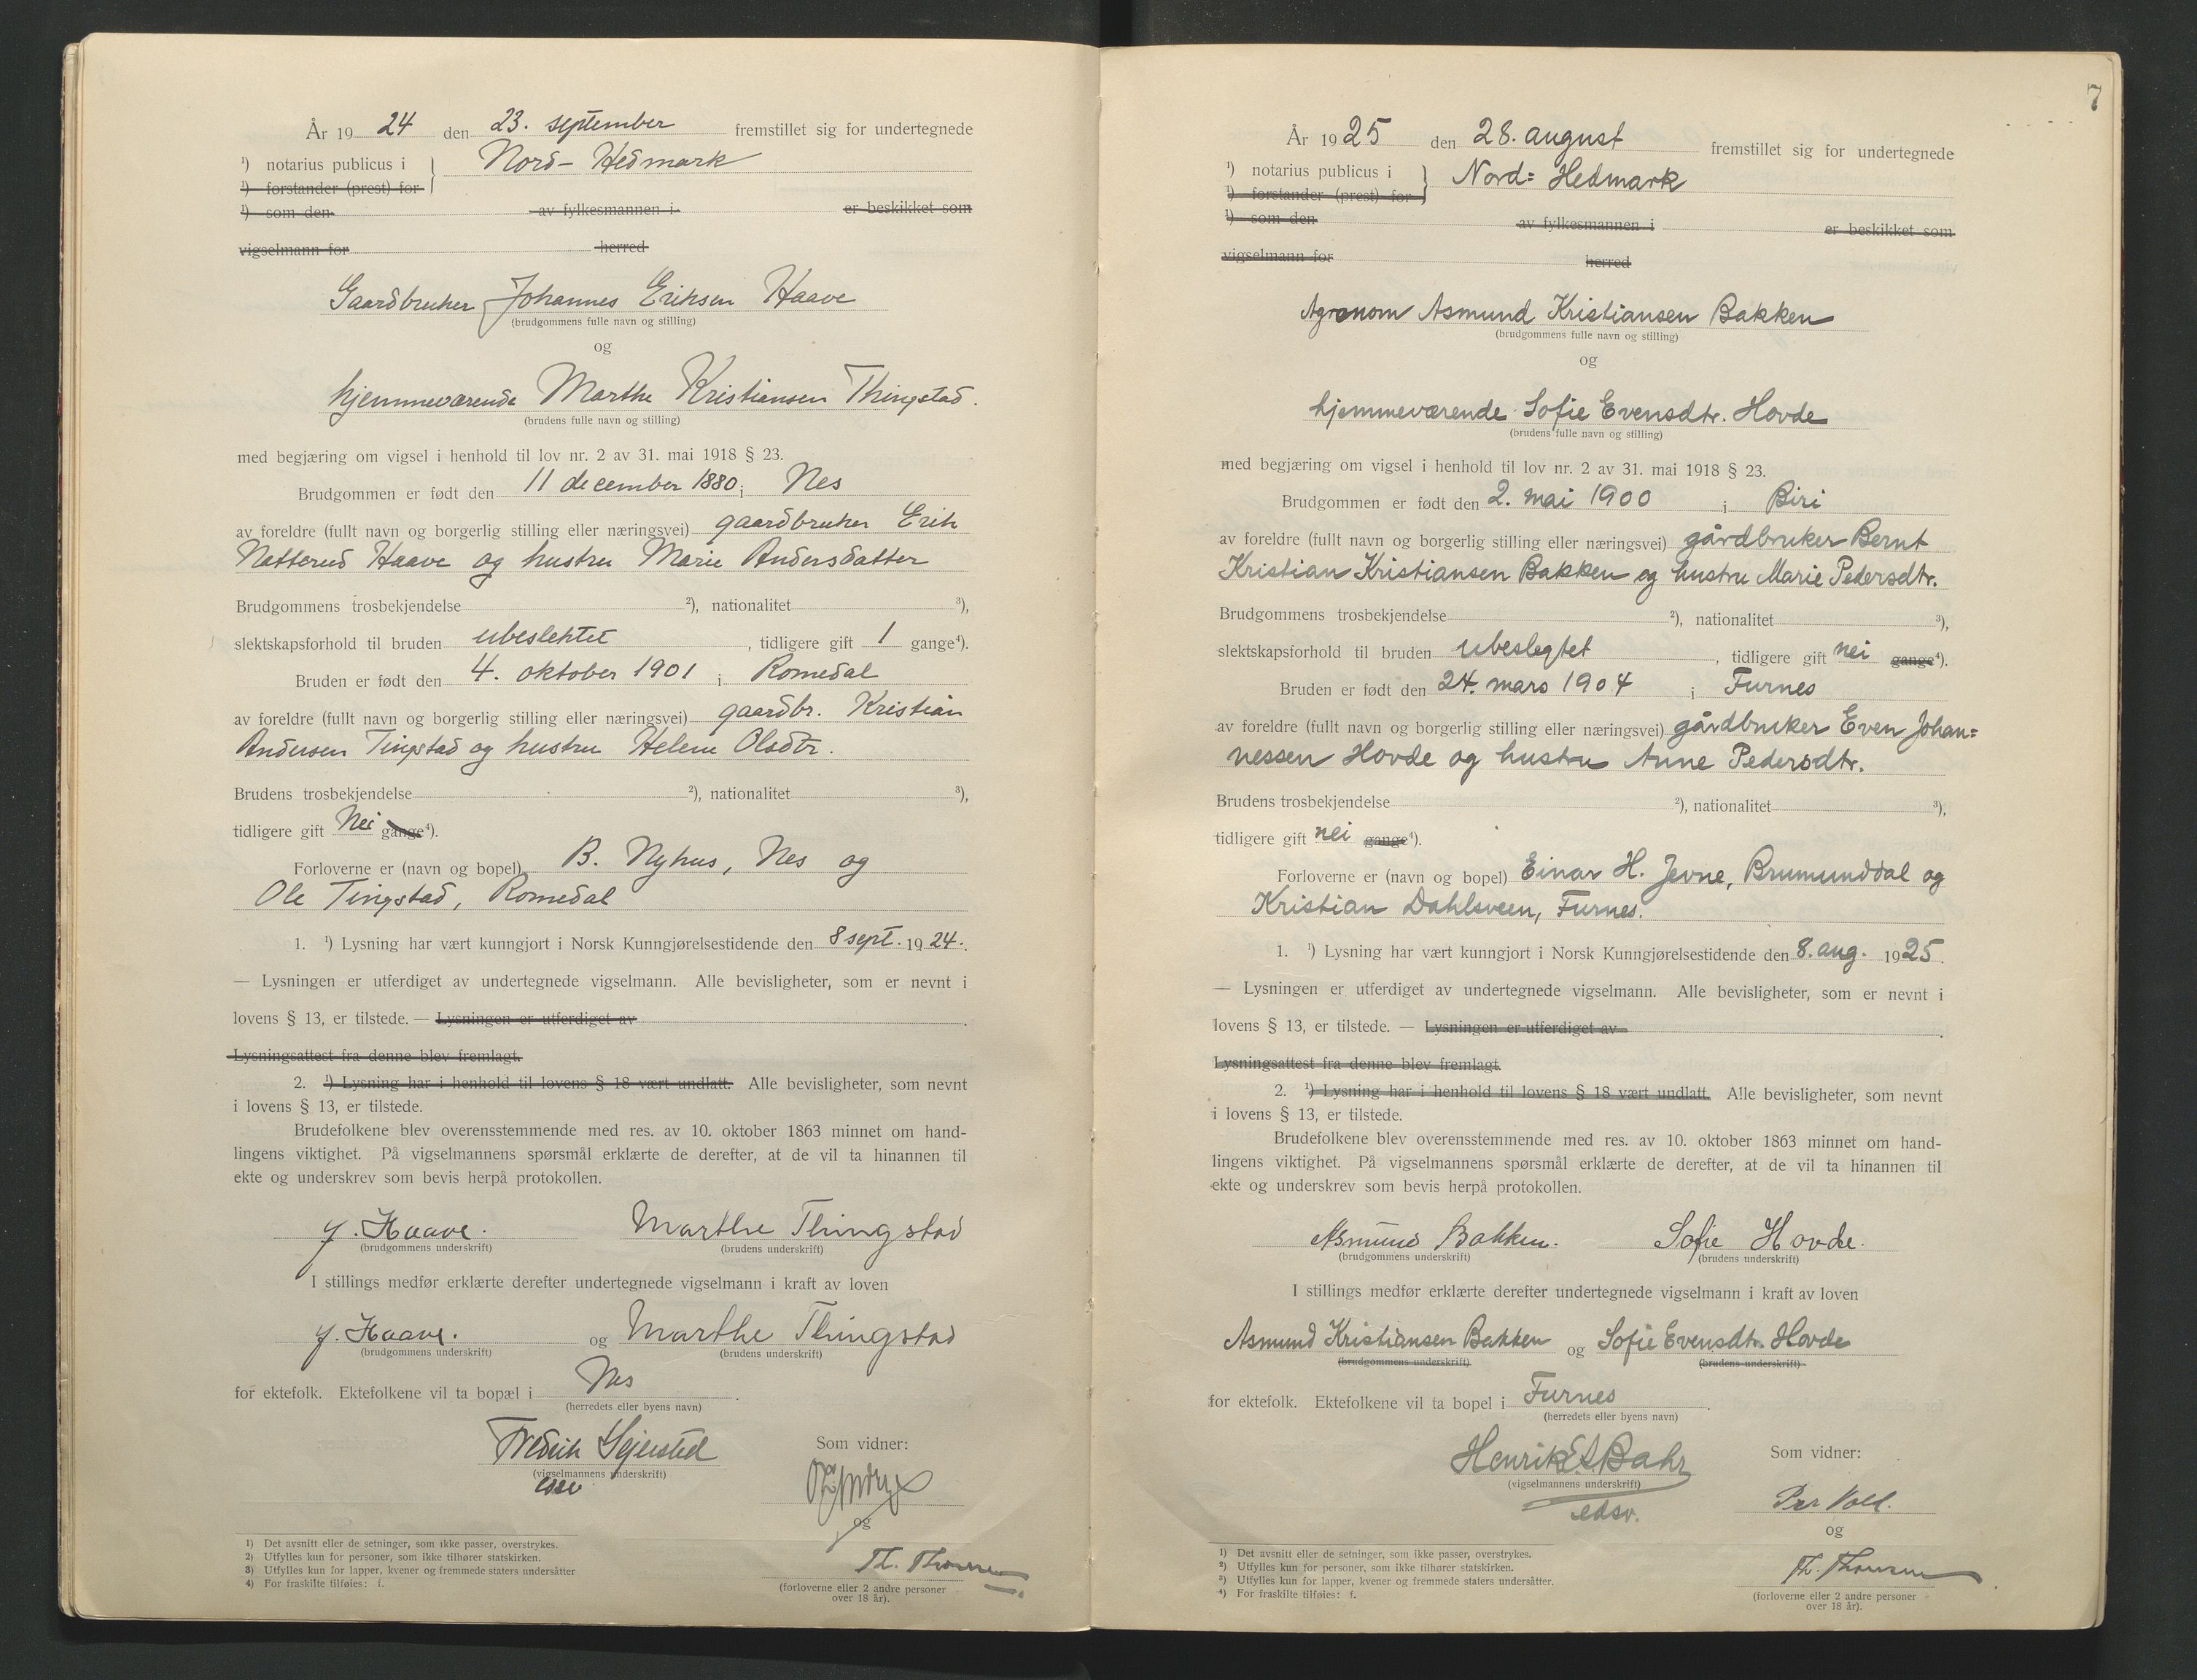 År 1924 den 23. september fremstillet sig for undertegnede
¹) notarius publicus i } Nord-Hedmark
¹) forstander (prest) for
¹) som den av fylkesmannen i er beskikket som
vigselmann for herred
Gaardbruker Johannes Eriksen Haave
(brudgommens fulle navn og stilling)
og
hjemmeværende Marthe Kristiansen Thingstad.
(brudens fulle navn og stilling)
med begjæring om vigsel i henhold til lov nr. 2 av 31. mai 1918 § 23.
Brudgommen er født den 11 december 1880 i Nes
av foreldre (fullt navn og borgerlig stilling eller næringsvei) gaardbruker Erik
Netterud Haave og hustru Marie Andersdatter
Brudgommens trosbekjendelse ²), nationalitet ³),
slektskapsforhold til bruden ubeslektet, tidligere gift 1 gange⁴).
Bruden er født den 4. oktober 1901 i Romedal
av foreldre (fullt navn og borgerlig stilling eller næringsvei) gaardbr. Kristian
Andersen Tingstad og hustru Helene Olsdtr.
Brudens trosbekjendelse ²), nationalitet ³),
tidligere gift Nei gange⁴).
Forloverne er (navn og bopel) B. Nyhus, Nes og
Ole Tingstad, Romedal
1. ¹) Lysning har vært kunngjort i Norsk Kunngjørelsestidende den 8 sept. 1924.
— Lysningen er utferdiget av undertegnede vigselmann. Alle bevisligheter, som er nevnt i
lovens § 13, er tilstede. — Lysningen er utferdiget av .
Lysningsattest fra denne blev fremlagt.
2. ¹) Lysning har i henhold til lovens § 18 vært undlatt. Alle bevisligheter, som nevnt
i lovens § 13, er tilstede.
Brudefolkene blev overensstemmende med res. av 10. oktober 1863 minnet om hand-
lingens viktighet. På vigselmannens spørsmål erklærte de derefter, at de vil ta hinannen til
ekte og underskrev som bevis herpå protokollen.
J. Haave. Marthe Thingstad
(brudgommens underskrift) (brudens underskrift)
I stillings medfør erklærte derefter undertegnede vigselmann i kraft av loven
J. Haave. og Marthe Thingstad
(brudgommens underskrift) (brudens underskrift)
for ektefolk. Ektefolkene vil ta bopæl i Nes.
(herredets eller byens navn)
Fredrik Sejersted
(vigselmannens underskrift)
Som vidner:
og
Th. Thomsen
(forloverne eller 2 andre personer
over 18 år).
1) Det avsnitt eller de setninger, som ikke passer, overstrykes.
2) Utfylles kun for personer, som ikke tilhører statskirken.
3) Utfylles kun for lapper, kvener og fremmede staters undersåtter
4) For fraskilte tilføies: f.
7
År 1925 den 28. august fremstillet sig for undertegnede
¹) notarius publicus i } Nord= Hedmark
¹) forstander (prest) for
¹) som den av fylkesmannen i er beskikket som
vigselmann for herred
Agronom Asmund Kristiansen Bakken
(brudgommens fulle navn og stilling)
og
hjemmeværende Sofie Evensdtr. Hovde
(brudens fulle navn og stilling)
med begjæring om vigsel i henhold til lov nr. 2 av 31. mai 1918 § 23.
Brudgommen er født den 2. mai 1900 i Biri
av foreldre (fullt navn og borgerlig stilling eller næringsvei) gårdbruker Bernt
Kristian Kristiansen Bakken og hustru Marie Pedersdtr.
Brudgommens trosbekjendelse ²), nationalitet ³),
slektskapsforhold til bruden ubeslegtet, tidligere gift nei gange⁴).
Bruden er født den 24. mars 1904 i Furnes
av foreldre (fullt navn og borgerlig stilling eller næringsvei) gårdbruker Even Johan=
nessen Hovde og hustru Anne Pedersdtr.
Brudens trosbekjendelse ²), nationalitet ³),
tidligere gift nei gange⁴).
Forloverne er (navn og bopel) Einar H. Jevne, Brumunddal og
Kristian Dahlsveen, Furnes.
1. ¹) Lysning har vært kunngjort i Norsk Kunngjørelsestidende den 8. aug. 1925.
— Lysningen er utferdiget av undertegnede vigselmann. Alle bevisligheter, som er nevnt i
lovens § 13, er tilstede. — Lysningen er utferdiget av .
Lysningsattest fra denne blev fremlagt.
2. ¹) Lysning har i henhold til lovens § 18 vært undlatt. Alle bevisligheter, som nevnt
i lovens § 13, er tilstede.
Brudefolkene blev overensstemmende med res. av 10. oktober 1863 minnet om hand-
lingens viktighet. På vigselmannens spørsmål erklærte de derefter, at de vil ta hinannen til
ekte og underskrev som bevis herpå protokollen.
Asmund Bakken. Sofie Hovde.
(brudgommens underskrift) (brudens underskrift)
I stillings medfør erklærte derefter undertegnede vigselmann i kraft av loven
Asmund Kristiansen Bakken og Sofie Evensdtr. Hovde
(brudgommens underskrift) (brudens underskrift)
for ektefolk. Ektefolkene vil ta bopel i Furnes.
(herredets eller byens navn)
Henrik E. S. Bahr
(vigselmannens underskrift)
edsv.
Som vidner:
Per Voll.
og
Th. Thomsen
(forloverne eller 2 andre personer
over 18 år).
¹) Det avsnitt eller de setninger, som ikke passer, overstrykes.
²) Utfylles kun for personer, som ikke tilhører statskirken.
³) Utfylles kun for lapper, kvener og fremmede staters undersåtter.
⁴) For fraskilte tilføies: f.